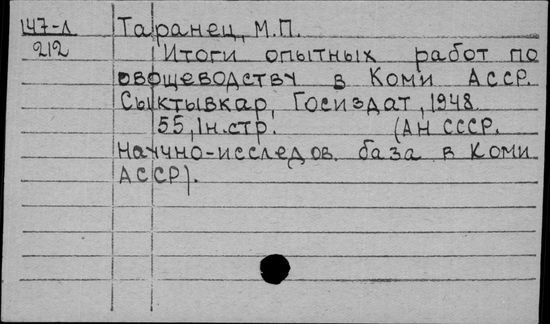 147-Л Таранец, М.П.
212 Итоги опытных работ по
овощеводству в Коми АССР.
Сыктывкар, Госиздат, 1948.
55, 1н.стр. (АН СССР.
Научно-исследов. база в Коми
АССР).